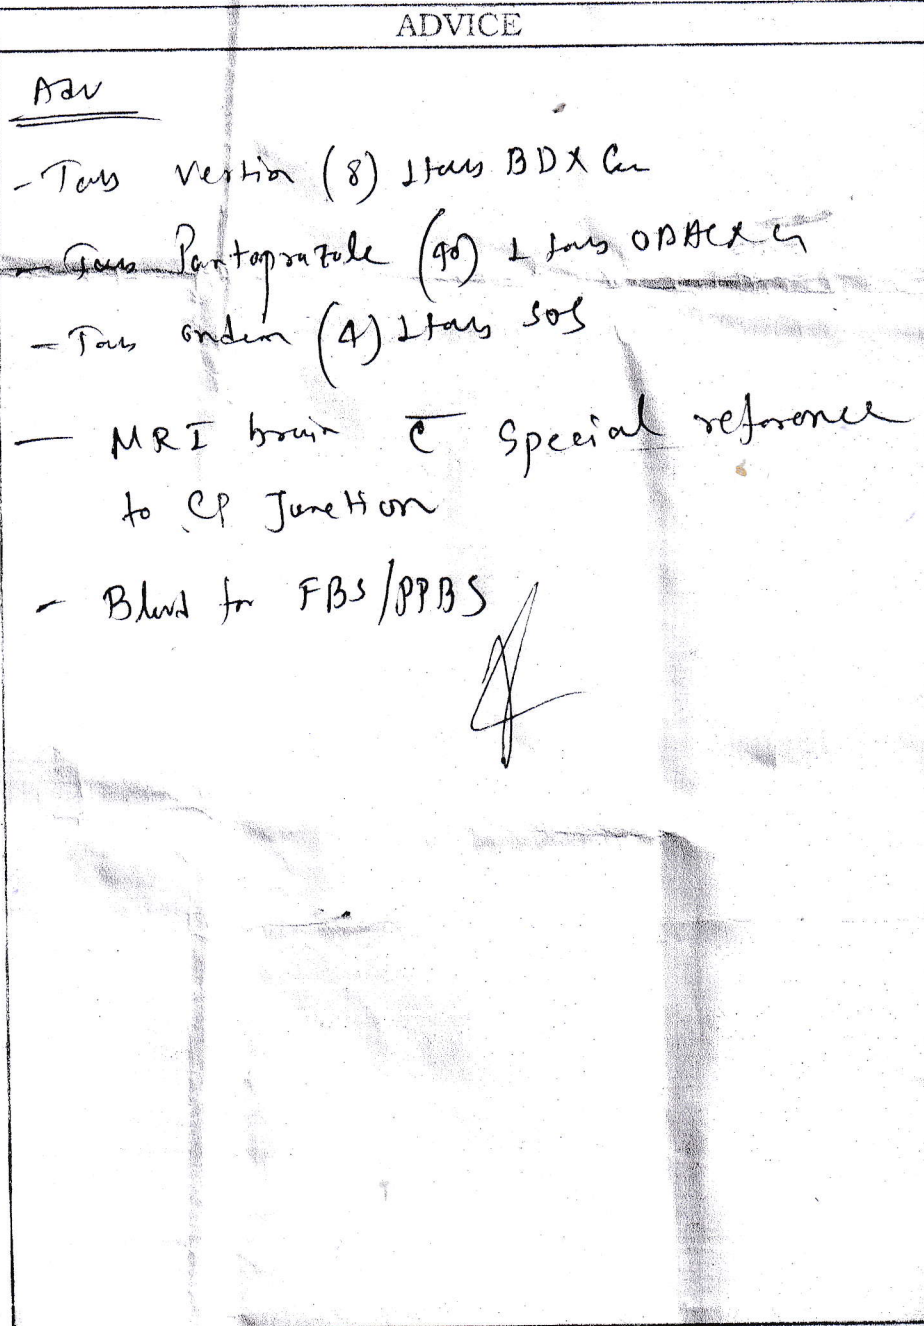 ADVICE
Adv
- Tab Vertin (8) 1 tab BD X
- Tab Pantoprazole (40) 1 tab OD AC X
- Tab ondem (4) 1 tab SOS
- MRI brain c̄ Special reference
to CP Junction
- Blood for FBS/PPBS